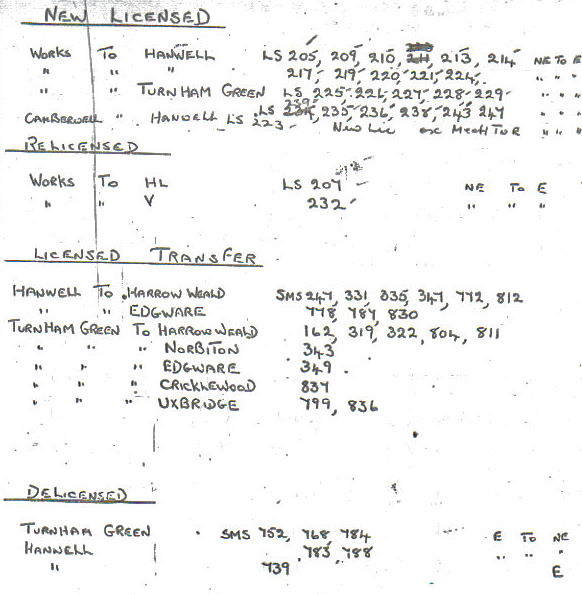 NEW LICENSED
WORKS TO HANWELL LS 205, 209, 210, 211, 213, 214 NE TO E
" " " 217, 219, 220, 221, 224, " " "
" " TURNHAM GREEN LS 225, 226, 227, 228, 229 " " "
CAMBERWELL " HANWELL LS 235, 236, 238, 243 247 " " "
LS 223 New Lic exc Mech TNR " " "
RELICENSED
WORKS TO HL LS 207 NE TO E
" " V 232 " " "
LICENSED TRANSFER
HANWELL TO HARROW WEALD SMS 247, 331, 335, 347, 772, 812
" " EDGWARE 778, 787, 830
TURNHAM GREEN TO HARROW WEALD 162, 319, 322, 804, 811
" " " NORBITON 343
" " " EDGWARE 349
" " " CRICKLEWOOD 837
" " " UXBRIDGE 799, 836
DELICENSED
TURNHAM GREEN SMS 752, 768, 784 E TO NE
HANWELL 783, 788 " " "
" 739 E